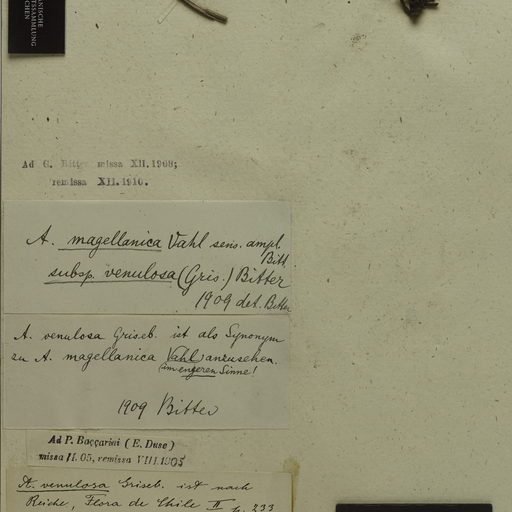 ANISCHE
TSSAMMLUNG
CHEN
Ad G. Bitter missa XII.1908;
remissa XII.1910.
A. magellanica Vahl sens. ampl.
Bitt
subsp. venulosa (Gris.) Bitter
1909 det. Bitter
A. venulosa Griseb. ist als Synonym
zu A. magellanica Vahl anzusehen.
(im engeren Sinne!
1909 Bitter
Ad P. Baccarini (E. Duse)
missa II.05, remissa VIII.1905
A. venulosa Griseb. ist nach
Reiche, Flora de Chile II p. 233